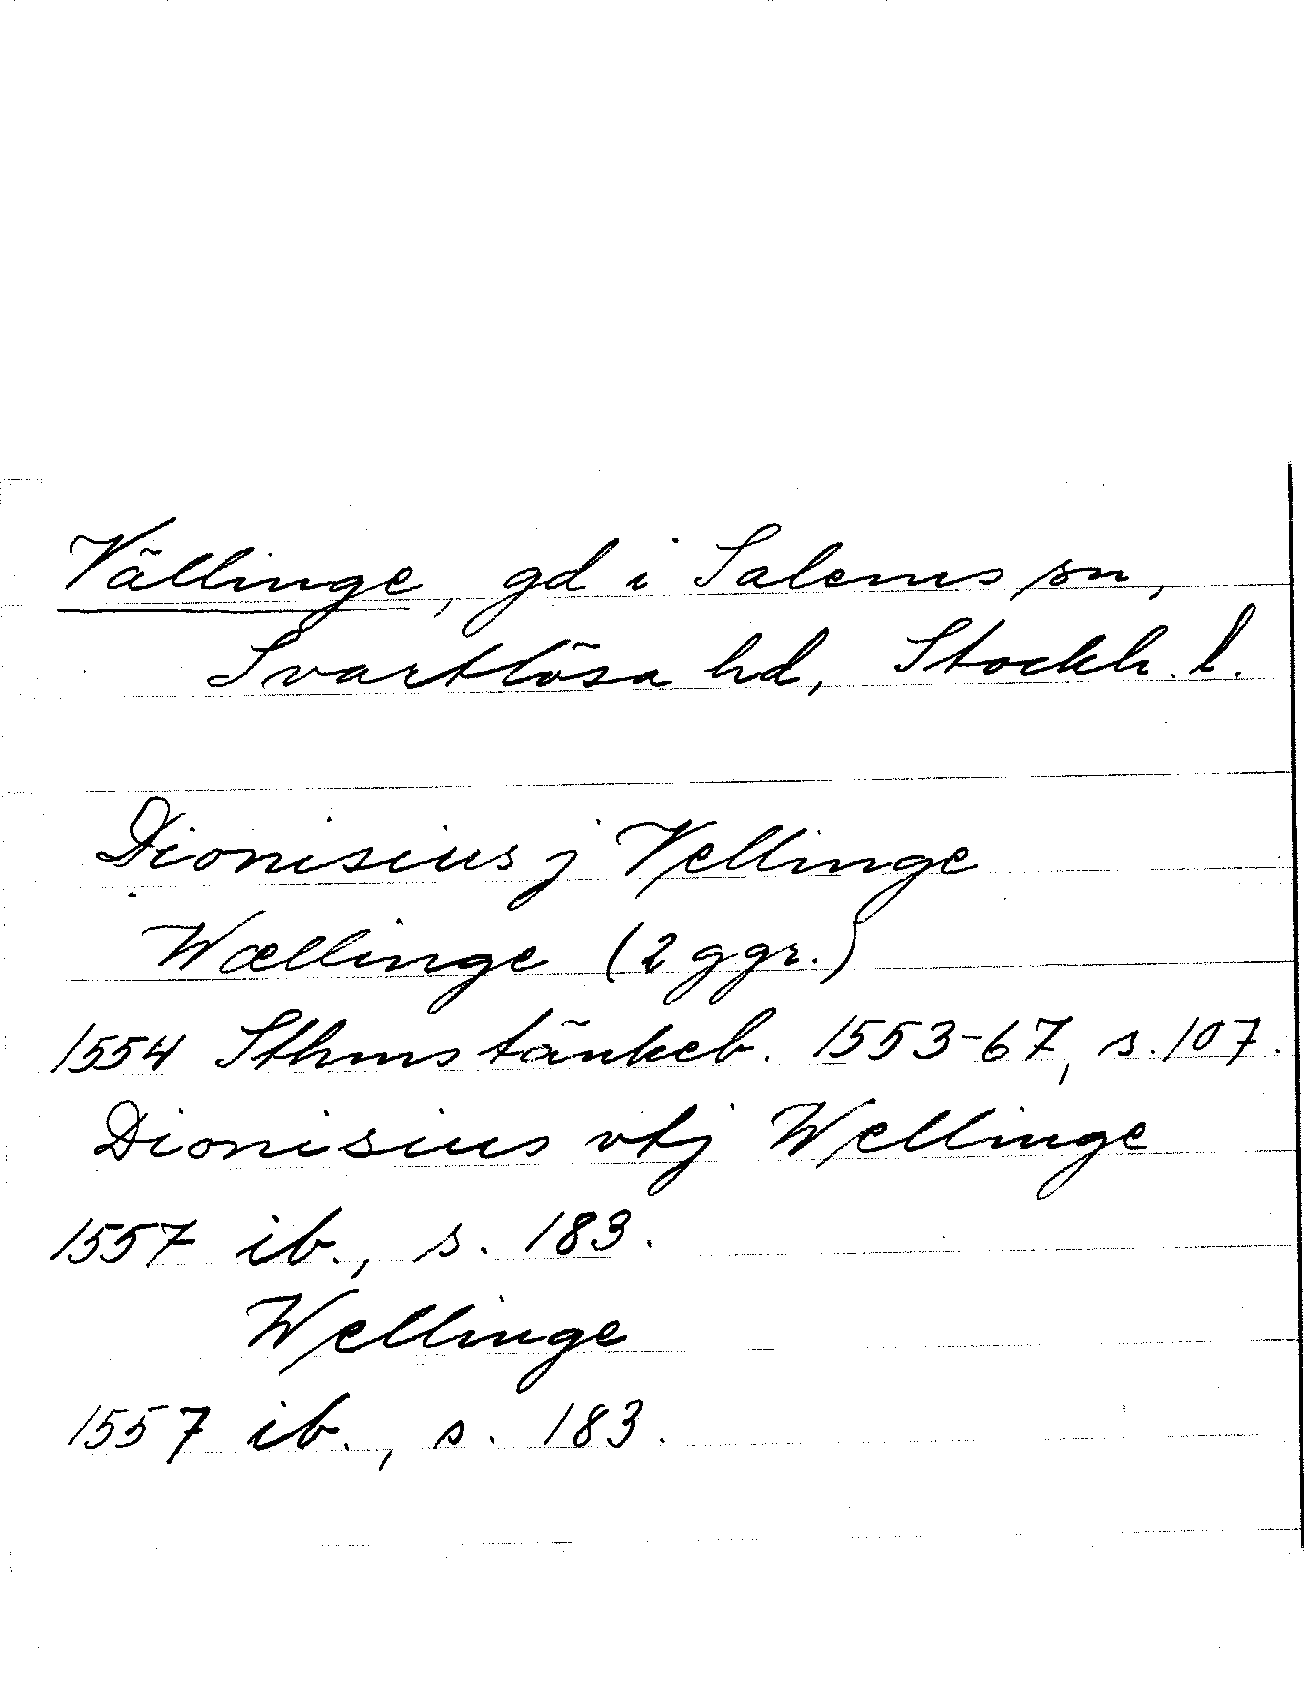 Vällinge, gd i Salems sn,
Svartlösa hd, Stockh. l.
Dionisius j Vellinge
Wællinge (2 ggr.)
1554 Sthms tänkeb. 1553-67, s. 107.
Dionisius vtj Wellinge
1557 ib., s. 183.
Wellinge
1557 ib., s. 183.